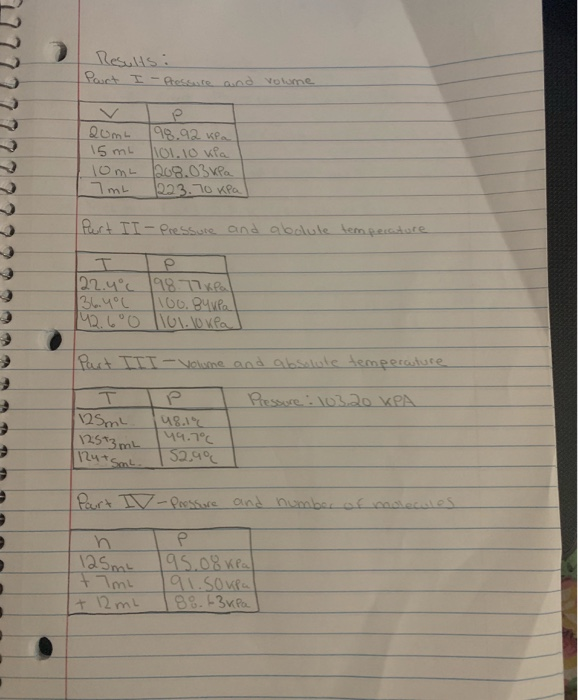 Results:
Part I - Pressure and volume
V P
20mL 98.92 kPa
15 mL 101.10 kPa
10mL 208.03kPa
7mL 223.70 kPa
Part II - Pressure and abolute temperature
T P
22.4°C 98.77 kPa
36.4°C 100.84kPa
42.6°C 101.10 kPa
Part III - Volume and absolute temperature
T P Pressure: 103.20 KPA
125mL 48.1°C
125+3mL 49.7°C
124+5mL 52.9°C
Part IV - Pressure and number of molecules
n P
125mL 95.08 kPa
+ 7mL 91.50kPa
+ 12mL 88.63kPa